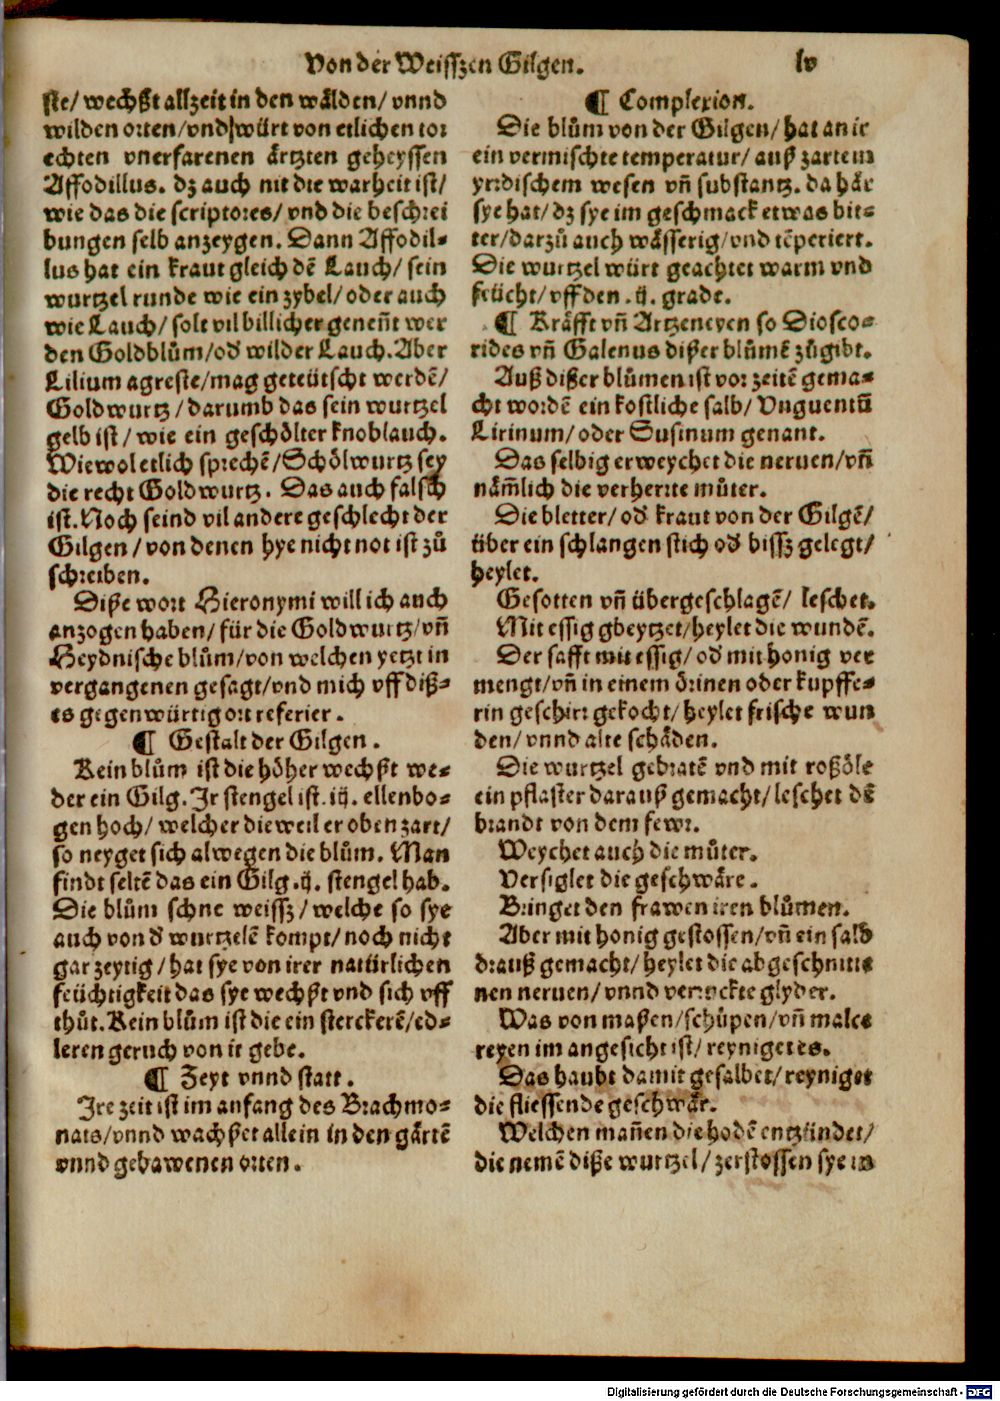 Von der Weisszen Gilgen. lv
ste/ wechßt allzeit in den wålden/ vnnd
wilden orten/vnd würt von etlichen tor
echten vnerfarenen ärtzten geheyssen
Affodillus. dz auch nit die warheit ist/
wie das die scriptores/ vnd die beschrei
bungen selb anzeygen. Dann Affodil-
lus hat ein kraut gleich dē Lauch/ sein
wurtzel runde wie ein zybel/ oder auch
wie Lauch/ solt vil billicher geneñt wer
den Goldblům/od' wilder Lauch. Aber
Lilium agreste/mag geteütscht werdē/
Goldwurtz/ darumb das sein wurtzel
gelb ist/ wie ein geschölter knoblauch.
Wiewol etlich sprechē/Schölwurtz sey
die recht Goldwurtz. Das auch falsch
ist. Noch seind vil andere geschlecht der
Gilgen/ von denen hye nicht not ist zů
schreiben.
Diße wort Hieronymi will ich auch
anzogen haben/ für die Goldwurtz/vñ
Heydnische blům/von welchen yetzt in
vergangenen gesagt/vnd mich vff diß-
es gegenwürtig ort referier.
¶ Gestalt der Gilgen.
Kein blům ist die höher wechßt we-
der ein Gilg. Ir stengel ist .iij. ellenbo-
gen hoch/ welcher dieweil er oben zart/
so neyget sich alwegen die blům. Man
findt seltē das ein Gilg .ij. stengel hab.
Die blům schne weissz/ welche so sye
auch von d' wurtzelē kompt/ noch nicht
gar zeytig/ hat sye von irer natürlichen
feüchtigkeit das sye wechßt vnd sich vff
thůt. Kein blům ist die ein sterckerē/ed-
leren geruch von ir gebe.
¶ Zeyt vnnd statt.
Ire zeit ist im anfang des Brachmo-
nats/vnnd wachßet allein in den gärtē
vnnd gebawenen orten.
¶ Complexion.
Die blům von der Gilgen/ hat an ir
ein vermischte temperatur/ auß zartem
yrdischem wesen vñ substantz. da här
sye hat/ dz sye im geschmack etwas bit-
ter/darzů auch wåsserig/vnd tēperiert.
Die wurtzel würt geachtet warm vnd
feücht/ vff den .ij. grade.
¶ Kräfft vñ Artzeneyen so Diosco-
rides vñ Galenus dißer blůmē zůgibt.
Auß dißer blůmen ist vor zeitē gema-
cht wordē ein kostliche salb/ Vnguentū
Lirinum/ oder Susinum genant.
Das selbig erweychet die neruen/vñ
näm̄lich die verherte můter.
Die bletter/ od' kraut von der Gilgē/
über ein schlangen stich od' bissz gelegt/
heylet.
Gesotten vñ übergeschlagē/ leschet.
Mit essig gbeytzet/heylet die wundē.
Der safft mit essig/ od' mit honig ver
mengt/vñ in einem örinen oder kupffe-
rin geschirr gekocht/ heylet frische wun
den/ vnnd alte schäden.
Die wurtzel gebratē vnd mit roßöle
ein pflaster darauß gemacht/leschet dē
brandt von dem fewr.
Weychet auch die můter.
Versiglet die geschwåre.
Bringet den frawen iren blůmen.
Aber mit honig gestossen/vñ ein salb
drauß gemacht/ heylet die abgeschnitte
nen neruen/ vnnd verruckte glyder.
Was von maßen/schůpen/vñ malet
reyen im angesicht ist/ reyniget es.
Das haubt damit gesalbet/ reyniget
die fliessende geschwår.
Welchen mañen die hodē entzündet/
die nemē diße wurtzel/ zerstossen sye in
Digitalisierung gefördert durch die Deutsche Forschungsgemeinschaft - DFG